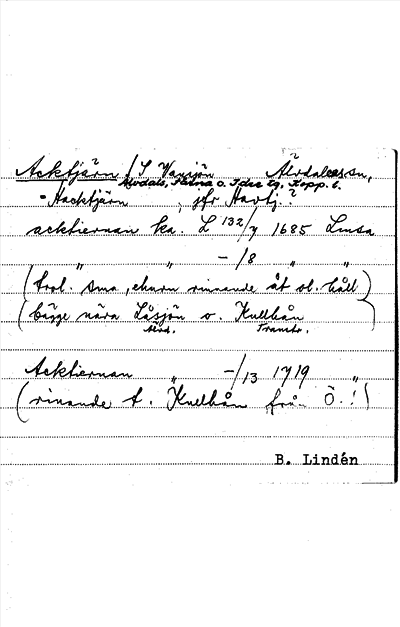 Acktjärn / S Vansjön Älvdalens sn,
Älvdals, Särna o. Idre tg. Kopp. l.
= Hacktjärn ; jfr Havtj.?
acktiernan ka. L 132/7 1685 Lmsa
" " - /8 " "
(trol. sma, ehuru rinnande åt ol. håll)
(bägge nära Låsjön o. Kullbån)
Älvd. Transtr.
Acktiernan " -/13 1719 "
(rinande t. Kullbån från Ö.!)
B. Lindén